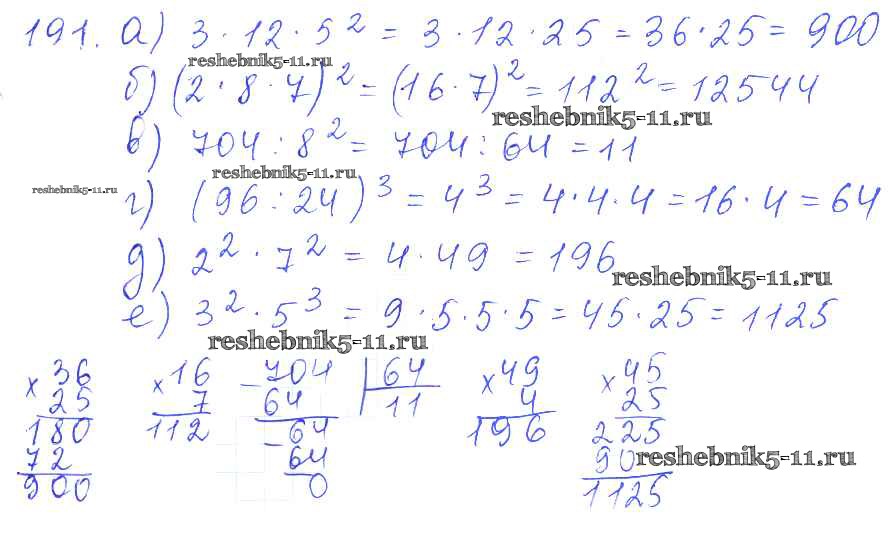 191. а) 3 · 12 · 5² = 3 · 12 · 25 = 36 · 25 = 900
reshebnik5-11.ru
б) (2 · 8 · 7)² = (16 · 7)² = 112² = 12544
reshebnik5-11.ru
в) 704 : 8² = 704 : 64 = 11
reshebnik5-11.ru
reshebnik5-11.ru
г) (96 : 24)³ = 4³ = 4 · 4 · 4 = 16 · 4 = 64
д) 2² · 7² = 4 · 49 = 196
reshebnik5-11.ru
е) 3² · 5³ = 9 · 5 · 5 · 5 = 45 · 25 = 1125
reshebnik5-11.ru
× 36 × 16 − 704 | 64 × 49 × 45
25 7 64 11 4 25
180 112 − 64 196 225
72 64 90 reshebnik5-11.ru
900 0 1125